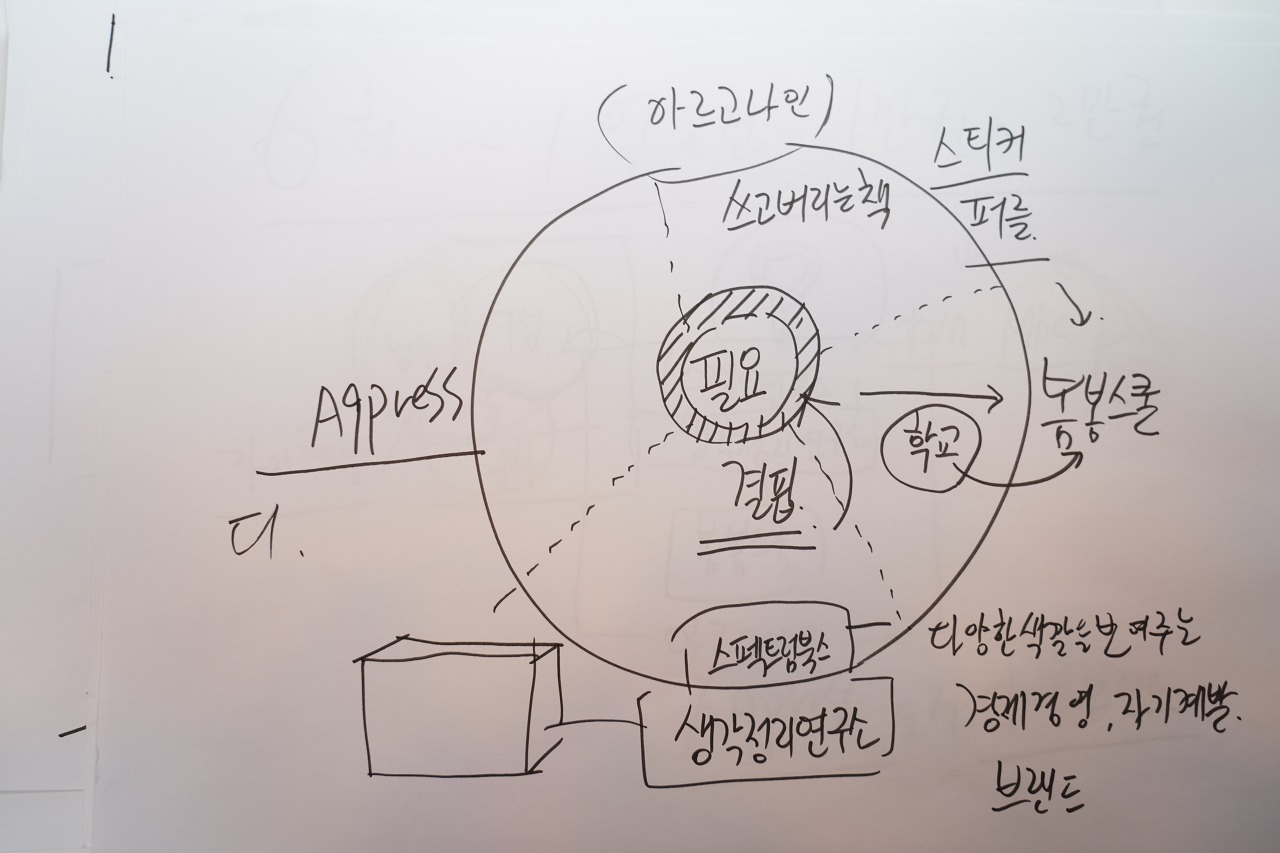 (아르고나인)
스티커
퍼즐.
쓰고버리는책
필요
Agpress
품봉스쿨
학교
결핍.
디.
스펙트럼북스
다양한색깔을보여주는
생각정리연구소
경제경영, 자기계발.
브랜드